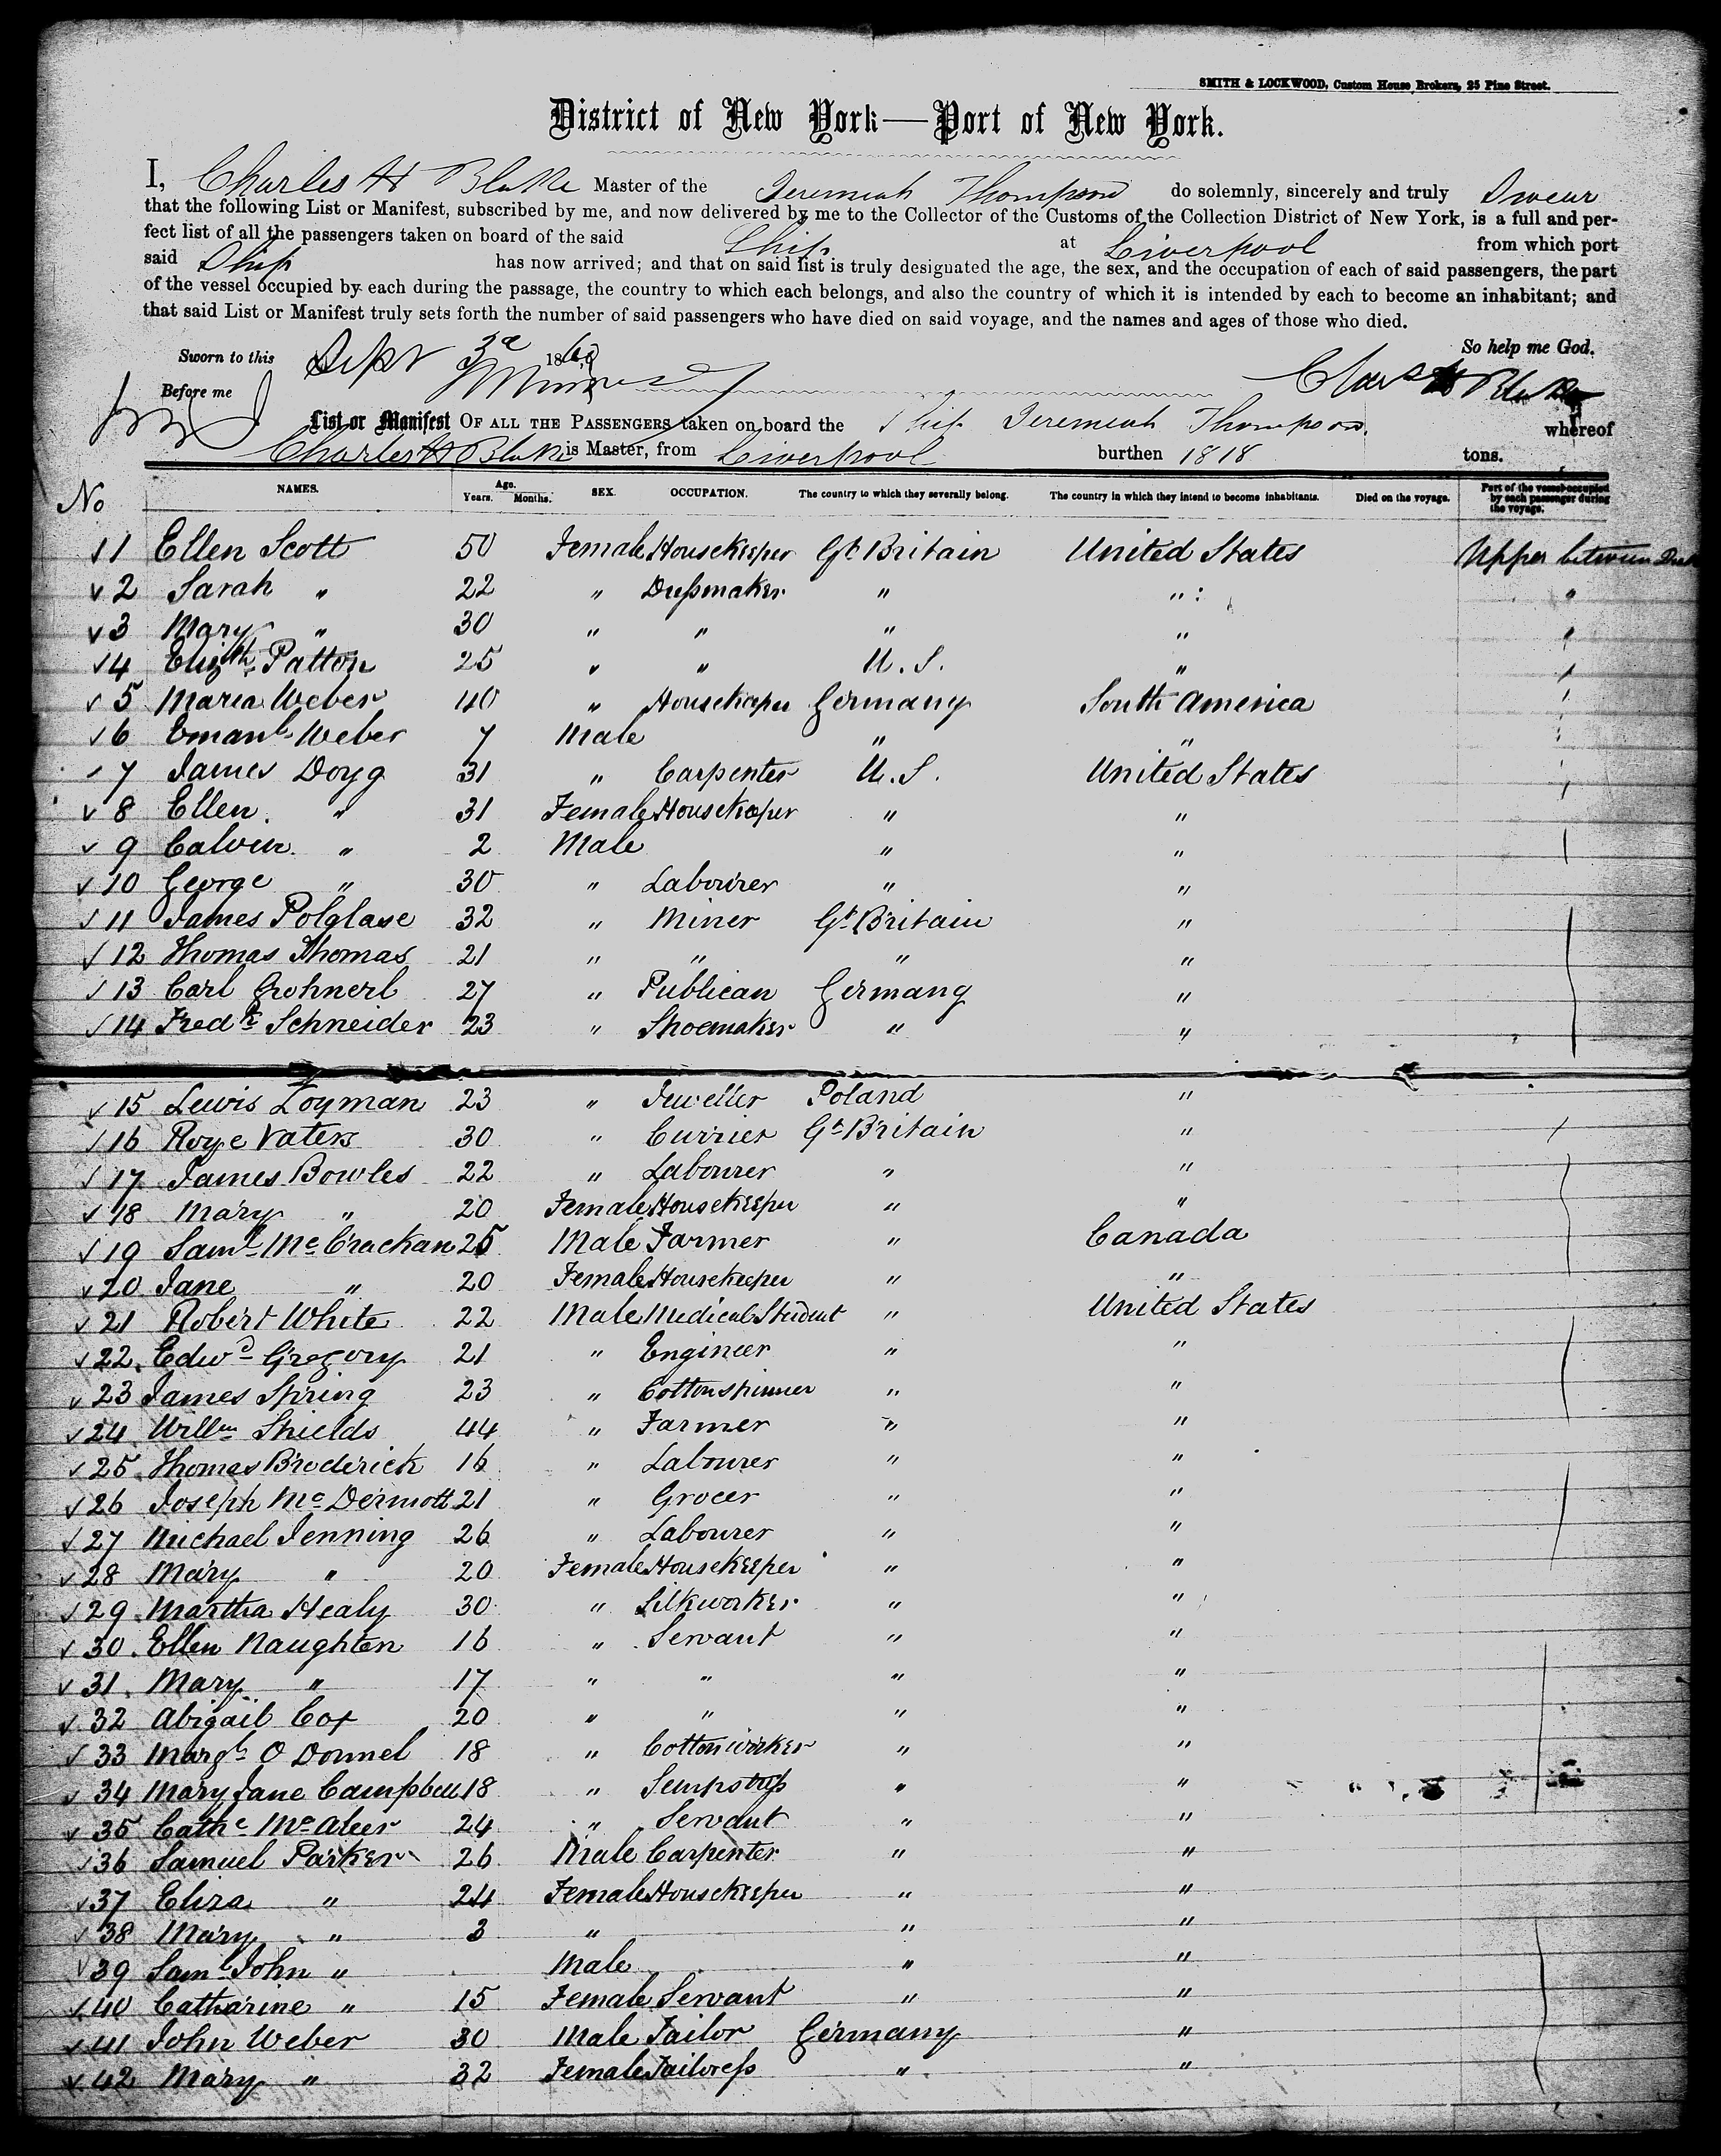 SMITH & LOCKWOOD, Custom House Brokers, 25 Pine Street.
District of New York—Port of New York.
I, Charles H Blake Master of the Jeremiah Thompson do solemnly, sincerely and truly Swear
that the following List or Manifest, subscribed by me, and now delivered by me to the Collector of the Customs of the Collection District of New York, is a full and per-
fect list of all the passengers taken on board of the said Ship at Liverpool from which port
said Ship has now arrived; and that on said list is truly designated the age, the sex, and the occupation of each of said passengers, the part
of the vessel occupied by each during the passage, the country to which each belongs, and also the country of which it is intended by each to become an inhabitant; and
that said List or Manifest truly sets forth the number of said passengers who have died on said voyage, and the names and ages of those who died.
Sworn to this Sept 3d 1860 So help me God.
Before me Chas H Blake
List or Manifest OF ALL THE PASSENGERS taken on board the Ship Jeremiah Thompson whereof
Charles H Blake is Master, from Liverpool burthen 1818 tons.
No NAMES. Age. Years. Months. SEX. OCCUPATION. The country to which they severally belong. The country in which they intend to become inhabitants. Died on the voyage. Part of the vessel occupied by each passenger during the voyage.
1 Ellen Scott 50 Female Housekeeper Gt Britain United States Upper between Deck
2 Sarah " 22 " Dressmaker " "
3 Mary " 30 " " " "
4 Elizth Patton 25 " " U.S. "
5 Maria Weber 40 " Housekeeper Germany South America
6 Emanl Weber 7 Male " "
7 James Doyg 31 " Carpenter U.S. United States
8 Ellen " 31 Female Housekeeper " "
9 Calvin " 2 Male " "
10 George " 30 " Labourer " "
11 James Polglase 32 " Miner Gt Britain "
12 Thomas Thomas 21 " " " "
13 Carl Grohnerl 27 " Publican Germany "
14 Fredk Schneider 23 " Shoemaker " "
15 Lewis Loyman 23 " Jeweller Poland "
16 Roye Vaters 30 " Currier Gt Britain "
17 James Bowles 22 " Labourer " "
18 Mary " 20 Female Housekeeper " "
19 Saml McCrackan 25 Male Farmer " Canada
20 Jane " 20 Female Housekeeper " "
21 Robert White 22 Male Medical Student " United States
22 Edwd Gregory 21 " Engineer " "
23 James Spring 23 " Cottonspinner " "
24 Willm Shields 44 " Farmer " "
25 Thomas Broderick 16 " Labourer " "
26 Joseph McDermott 21 " Grocer " "
27 Michael Jenning 26 " Labourer " "
28 Mary " 20 Female Housekeeper " "
29 Martha Healy 30 " Silkworker " "
30 Ellen Naughten 16 " Servant " "
31 Mary " 17 " " " "
32 Abigail Cox 20 " " " "
33 Margt O Donnel 18 " Cottonworker " "
34 Mary Jane Campbell 18 " Sempstress " "
35 Cathe McAleer 24 " Servant " "
36 Samuel Parker 26 Male Carpenter " "
37 Eliza " 24 Female Housekeeper " "
38 Mary " 3 " " "
39 Saml John " Male " "
40 Catharine " 15 Female Servant " "
41 John Weber 30 Male Tailor Germany "
42 Mary " 32 Female Tailoress " "